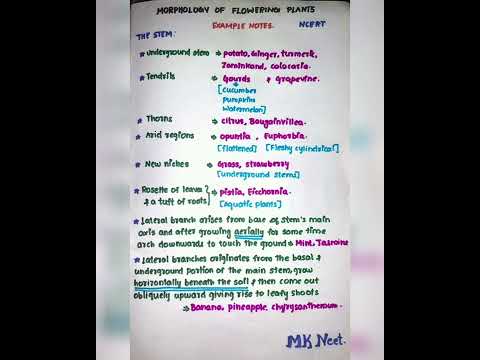 MORPHOLOGY OF FLOWERING PLANTS
EXAMPLE NOTES. NCERT
THE STEM:
★ underground stem → potato, Ginger, turmeric,
Zaminkand, colocasia.
★ Tendrils → Gourds & grapevine.
[cucumber
pumpkins
watermelon]
★ Thorns → citrus, Bougainvillea.
★ Arid regions → opuntia, Euphorbia.
[flattened] [Fleshy cylindrical]
★ New niches → Grass, strawberry
[underground stems]
★ Rosette of leaves & a tuft of roots } → pistia, Eichhornia.
[aquatic plants]
★ Lateral branch arises from base of stem's main
axis and after growing aerially for some time
arch downwards to touch the ground → Mint, Jasmine
★ Lateral branches originates from the basal &
underground portion of the main stem, grow
horizontally beneath the soil & then come out
obliquely upward giving rise to leafy shoots
→ Banana, pineapple, chyrysanthemum.
MK Neet.